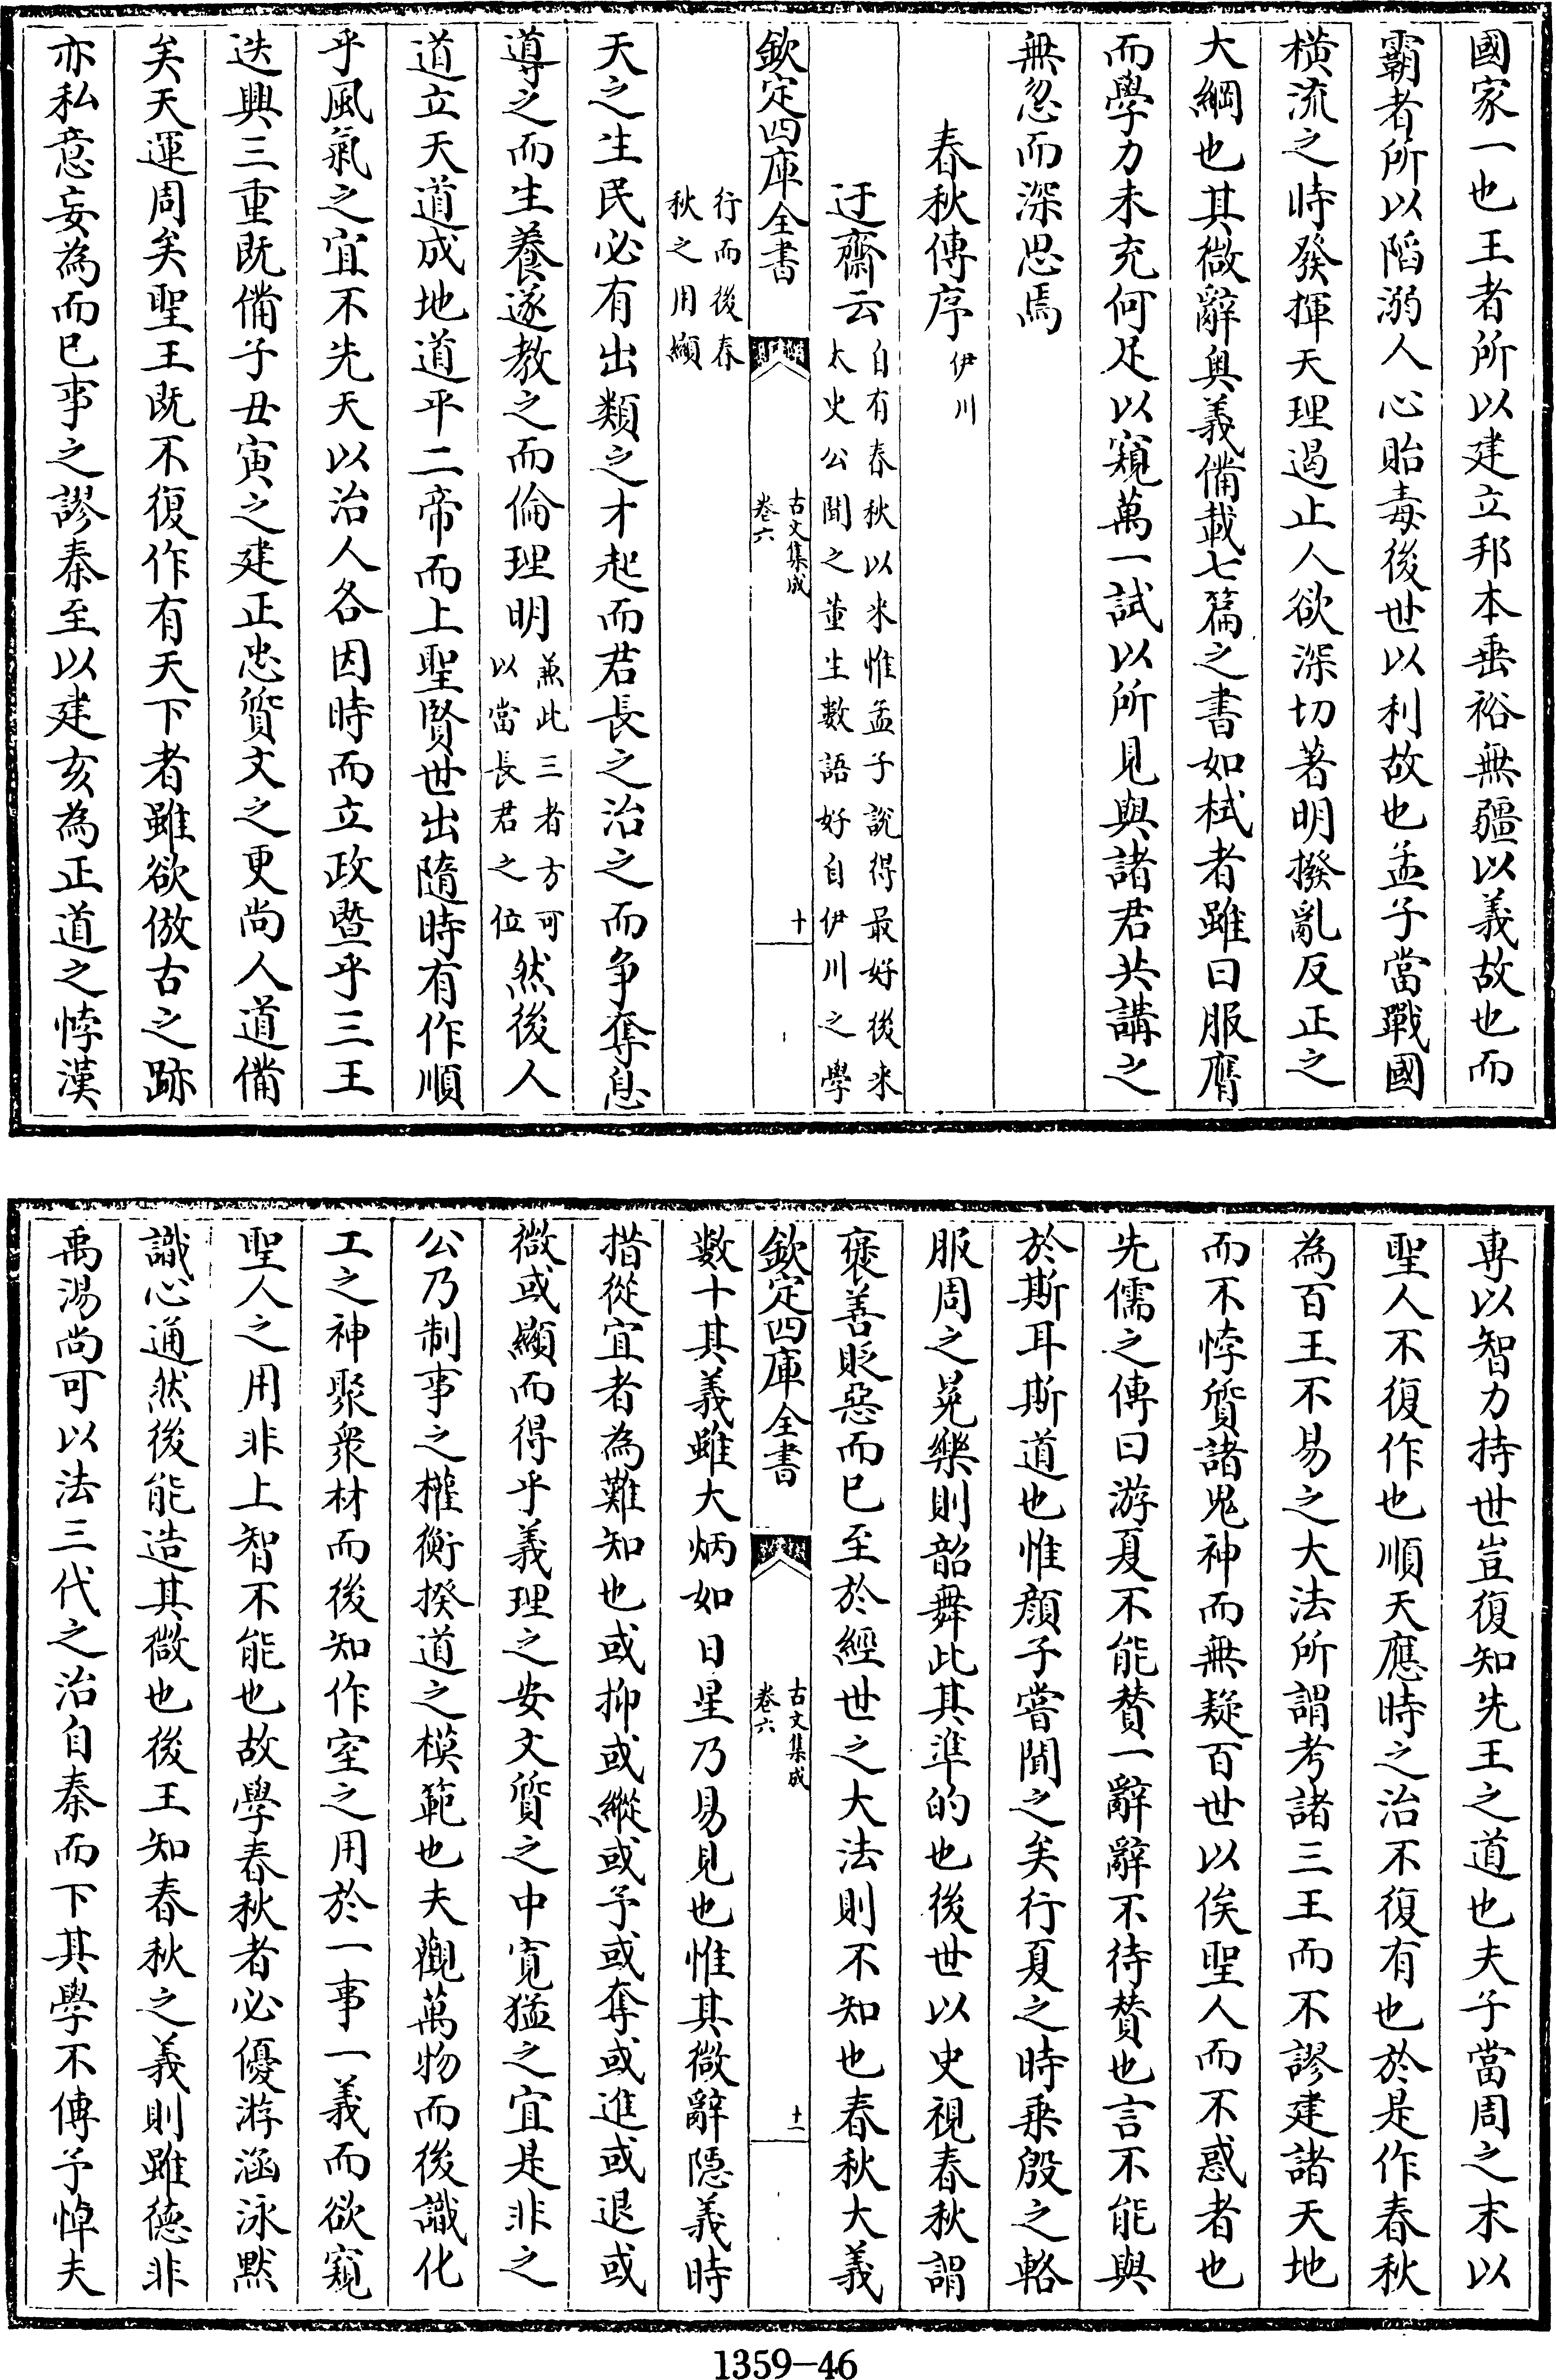 國家一也王者所以建立邦本垂裕無疆以義故也而
霸者所以陷溺人心貽毒後世以利故也孟子當戰國
橫流之時發揮天理遏止人欲深切著明撥亂反正之
大綱也其微辭奥義備載七篇之書如栻者雖曰服膺
而學力未充何足以窺萬一試以所見與諸君共講之
無忽而深思焉
春秋傳序伊川
迂齋云自有春秋以來惟孟子說得最好後來
太史公聞之董生數語好自伊川之學
欽定四庫全書
古文集成
卷六
十
行而後春
秋之用顯
天之生民必有出類之才起而君長之治之而争奪息
導之而生養遂教之而倫理明兼此三者方可以當長君之位然後人
道立天道成地道平二帝而上聖賢世出隨時有作順
乎風氣之宜不先天以治人各因時而立政暨乎三王
迭興三重既備子丑寅之建正忠質文之更尚人道備
矣天運周矣聖王既不復作有天下者雖欲倣古之跡
亦私意妄為而已事之謬秦至以建亥為正道之悖漢
專以智力持世豈復知先王之道也夫子當周之末以
聖人不復作也順天應時之治不復有也於是作春秋
為百王不易之大法所謂考諸三王而不謬建諸天地
而不悖質諸鬼神而無疑百世以俟聖人而不惑者也
先儒之傳曰游夏不能賛一辭辭不待賛也言不能與
於斯耳斯道也惟顔子嘗聞之矣行夏之時乗殷之輅
服周之冕樂則韶舞此其準的也後世以史視春秋謂
褒善貶惡而已至於經世之大法則不知也春秋大義
欽定四庫全書
古文集成
卷六
十一
數十其義雖大炳如日星乃易見也惟其微辭隱義時
措從宜者為難知也或抑或縱或予或奪或進或退或
微或顯而得乎義理之安文質之中寛猛之宜是非之
公乃制事之權衡揆道之模範也夫觀萬物而後識化
工之神聚衆材而後知作室之用於一事一義而欲窺
聖人之用非上智不能也故學春秋者必優游涵泳黙
識心通然後能造其微也後王知春秋之義則雖德非
禹湯尚可以法三代之治自秦而下其學不傳予悼夫
1359—46